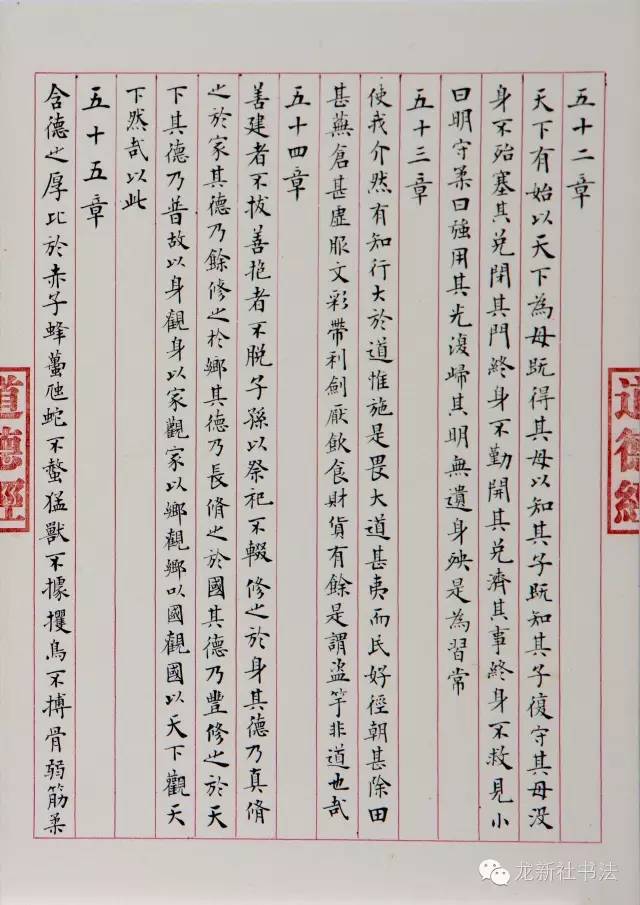 五十二章
天下有始以天下為母既得其母以知其子既知其子復守其母没
身不殆塞其兑閉其門終身不勤開其兑濟其事終身不救見小
曰明守柔曰強用其光復歸其明無遺身殃是為習常
五十三章
使我介然有知行大於道惟施是畏大道甚夷而民好徑朝甚除田
甚蕪倉甚虛服文彩帶利劍厭飲食財貨有餘是謂盜竽非道也哉
五十四章
善建者不拔善抱者不脫子孫以祭祀不輟修之於身其德乃真脩
之於家其德乃餘修之於鄉其德乃長脩之於國其德乃豐修之於天
下其德乃普故以身觀身以家觀家以鄉觀鄉以國觀國以天下觀天
下然哉以此
五十五章
含德之厚比於赤子蜂蠆虺蛇不螫猛獸不據攫鳥不搏骨弱筋柔
道德經
道德經
龙新社书法